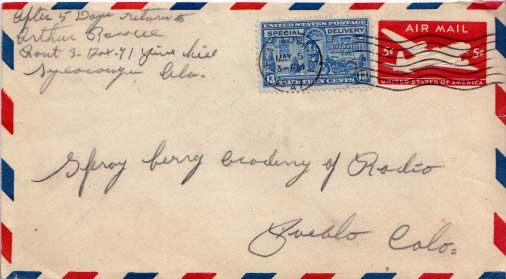 After 5 Days return to
Arthur
Rout 3- Box-71
Sylacauga Ala.
UNITED STATES POSTAGE
SPECIAL DELIVERY
13 CENTS 13
MAY 5
PM
AIR MAIL
5¢ 5¢
UNITED STATES OF AMERICA
Spray berry Academy of Radio
Pueblo Colo.